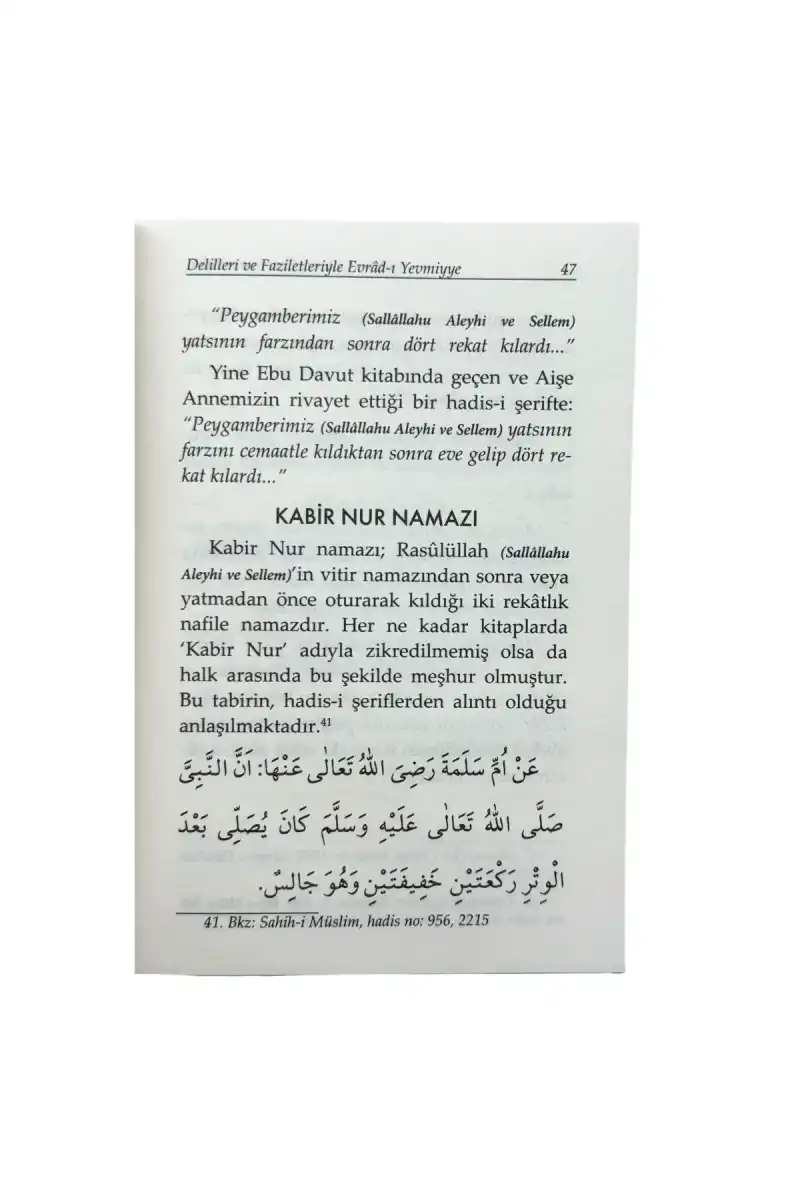 Delilleri ve Faziletleriyle Evrâd-ı Yevmiyye 47
“Peygamberimiz (Sallâllahu Aleyhi ve Sellem)
yatsının farzından sonra dört rekat kılardı...”
Yine Ebu Davut kitabında geçen ve Aişe
Annemizin rivayet ettiği bir hadis-i şerifte:
“Peygamberimiz (Sallâllahu Aleyhi ve Sellem) yatsının
farzını cemaatle kıldıktan sonra eve gelip dört re-
kat kılardı...”
KABİR NUR NAMAZI
Kabir Nur namazı; Rasûlüllah (Sallâllahu
Aleyhi ve Sellem)’in vitir namazından sonra veya
yatmadan önce oturarak kıldığı iki rekâtlık
nafile namazdır. Her ne kadar kitaplarda
‘Kabir Nur’ adıyla zikredilmemiş olsa da
halk arasında bu şekilde meşhur olmuştur.
Bu tabirin, hadis-i şeriflerden alıntı olduğu
anlaşılmaktadır.41
عَنْ اُمِّ سَلَمَةَ رَضِىَ اللهُ تَعَالٰى عَنْهَا: اَنَّ النَّبِىَّ
صَلَّى اللهُ تَعَالٰى عَلَيْهِ وَسَلَّمَ كَانَ يُصَلِّى بَعْدَ
الْوِتْرِ رَكْعَتَيْنِ خَفِيفَتَيْنِ وَهُوَ جَالِسٌ.
41. Bkz: Sahih-i Müslim, hadis no: 956, 2215